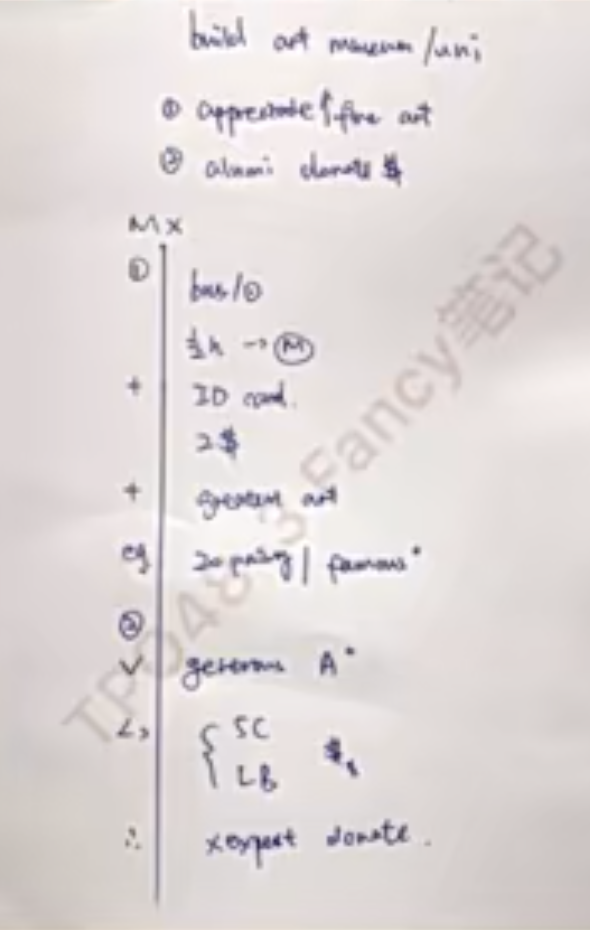 build art museum/uni
① appreciate↑fine art
② alumni donate $
M x
① bus/①
½h → Ⓜ
+ ID card.
2$
+ greatest art
eg 20 | famous°
②
✓ generous A°
<> { SC
LB $s
∴ x expect donate.
TPO48-3 Fancy笔记